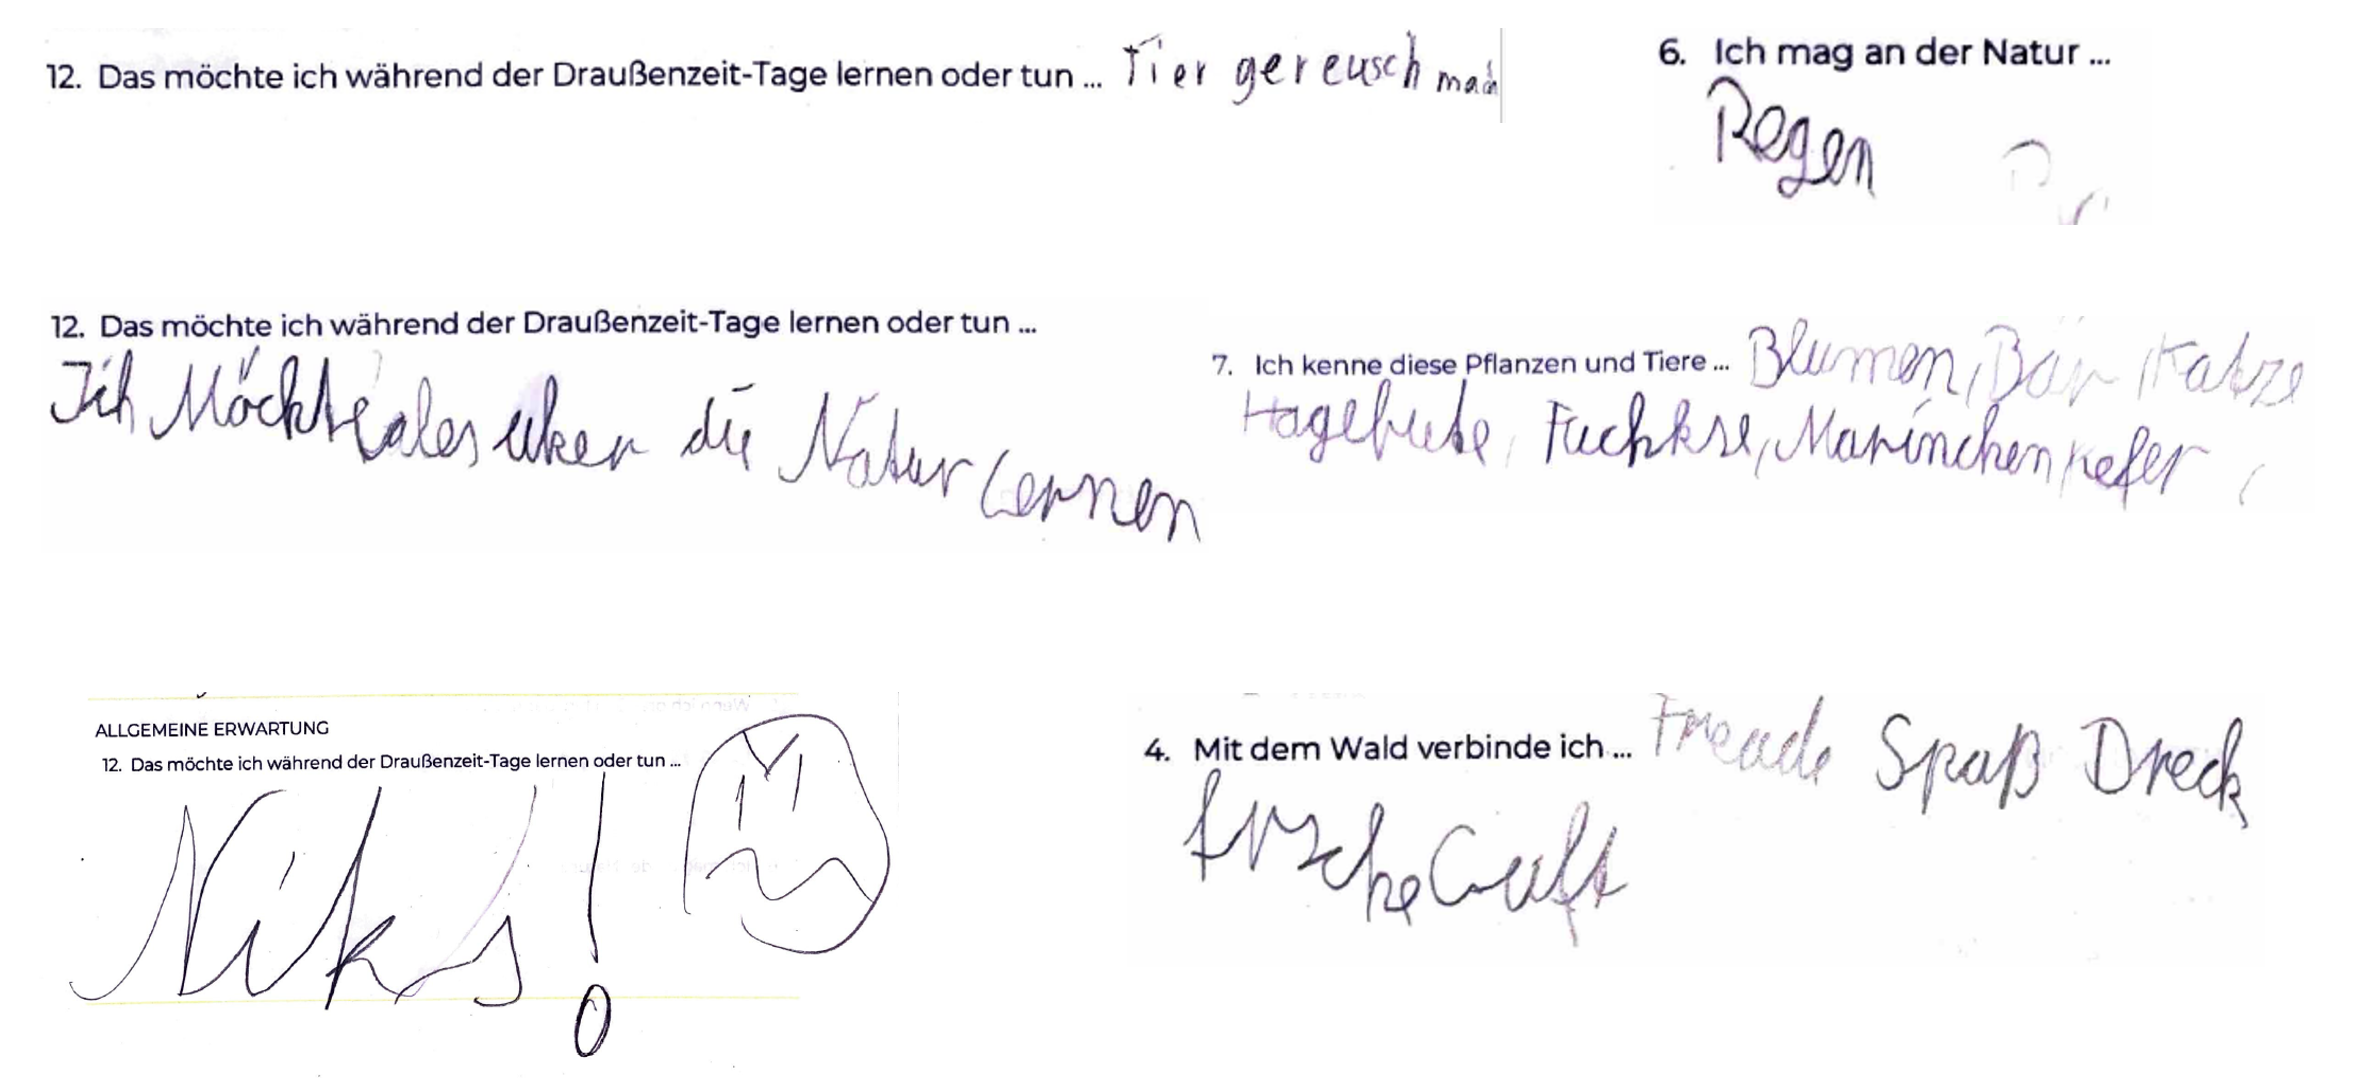 12. Das möchte ich während der Draußenzeit-Tage lernen oder tun ... Tier gereusch mach
6. Ich mag an der Natur ...
Regen
12. Das möchte ich während der Draußenzeit-Tage lernen oder tun ...
Ich Möchte ales über die Natur Lernen
7. Ich kenne diese Pflanzen und Tiere ... Blumen, Bär, Katze
Hagebute, Fuchkse, Marinchenkefer
ALLGEMEINE ERWARTUNG
12. Das möchte ich während der Draußenzeit-Tage lernen oder tun ...
Niks!
4. Mit dem Wald verbinde ich ... Freude Spaß Dreck
frische Luft